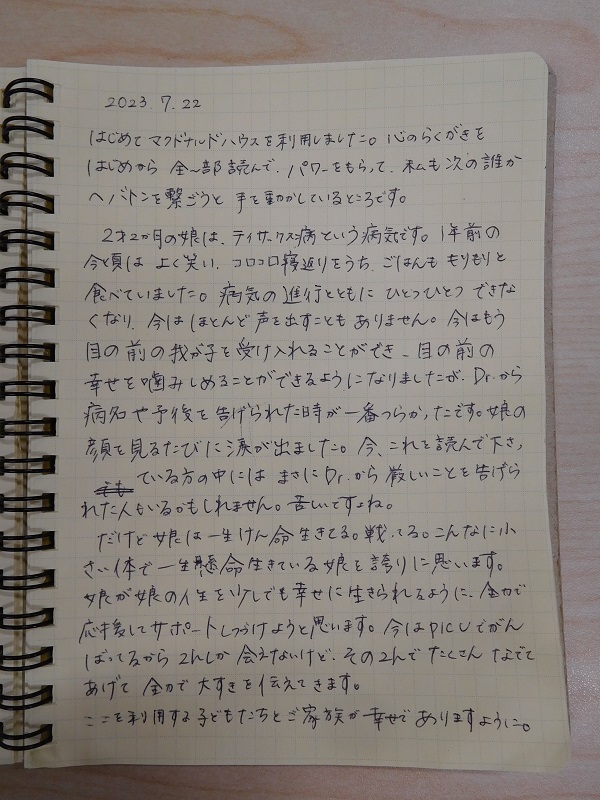 2023. 7. 22
はじめてマクドナルドハウスを利用しました。心のらくがきを
はじめから全〜部読んで、パワーをもらって、私も次の誰か
へバトンを繋ごうと手を動かしているところです。
2才2か月の娘は、テイサックス病という病気です。1年前の
今頃は よく笑い、コロコロ寝返りをうち、ごはんももりもりと
食べていました。病気の進行とともに ひとつひとつ できな
くなり、今はほとんど声を出すこともありません。今はもう
目の前の我が子を受け入れることができ、目の前の
幸せを噛みしめることができるようになりましたが、Dr.から
病名や予後を告げられた時が一番つらかったです。娘の
顔を見るたびに涙が出ました。今、これを読んで下さっ
ている方の中には まさにDr.から厳しいことを告げら
れた人もいるかもしれません。苦しいですよね。
だけど娘は一生けん命生きてる。戦ってる。こんなに小
さい体で一生懸命生きている娘を誇りに思います。
娘が娘の人生を少しでも幸せに生きられるように、全力で
応援してサポートしつづけようと思います。今はPICUでがん
ばってるから2hしか会えないけど、その2hでたくさんなでて
あげて 全力で大すきを伝えてきます。
ここを利用する子どもたちとご家族が幸せでありますように。